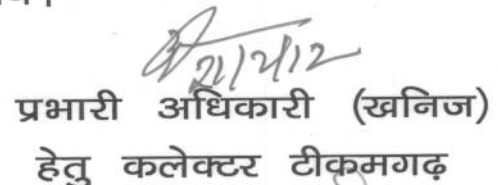 21/2/12
प्रभारी अधिकारी (खनिज)
हेतु कलेक्टर टीकमगढ़